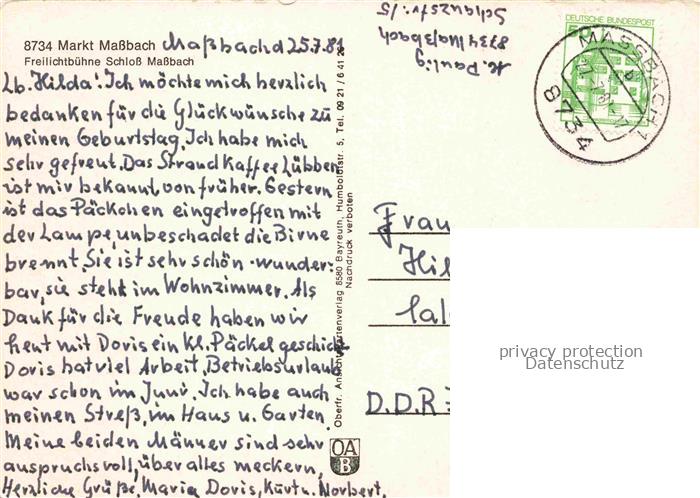 8734 Markt Maßbach Maßbach d 25.7.81
Freilichtbühne Schloß Maßbach
Lb. Hilda! Ich möchte mich herzlich
bedanken für die Glückwünsche zu
meinen Geburtstag. Ich habe mich
sehr gefreut. Das Strand Kaffee Lübben
ist mir bekannt von früher. Gestern
ist das Päckchen eingetroffen mit
der Lampe, unbeschadet die Birne
brennt. Sie ist sehr schön - wunder-
bar, sie steht im Wohnzimmer. Als
Dank für die Freude haben wir
heut mit Doris ein Kl. Päckel geschickt
Doris hat viel Arbeit, Betriebsurlaub
war schon im Juni. Ich habe auch
meinen Streß, im Haus u. Garten.
Meine beiden Männer sind sehr
anspruchsvoll, über alles meckern,
Herzliche Grüße, Maria Doris, Kurt u. Norbert.
Oberfr. Ansichtskartenverlag 8580 Bayreuth, Humboldtstr. 5, Tel. 09 21 / 6 41 26
Nachdruck verboten
OA
B
M. Paulig
8734 Maßbach
Schanzstr. 15
DEUTSCHE BUNDESPOST
50
MASSBACH 1
8734
Frau
Hil
Cal
D.D.R
privacy protection
Datenschutz